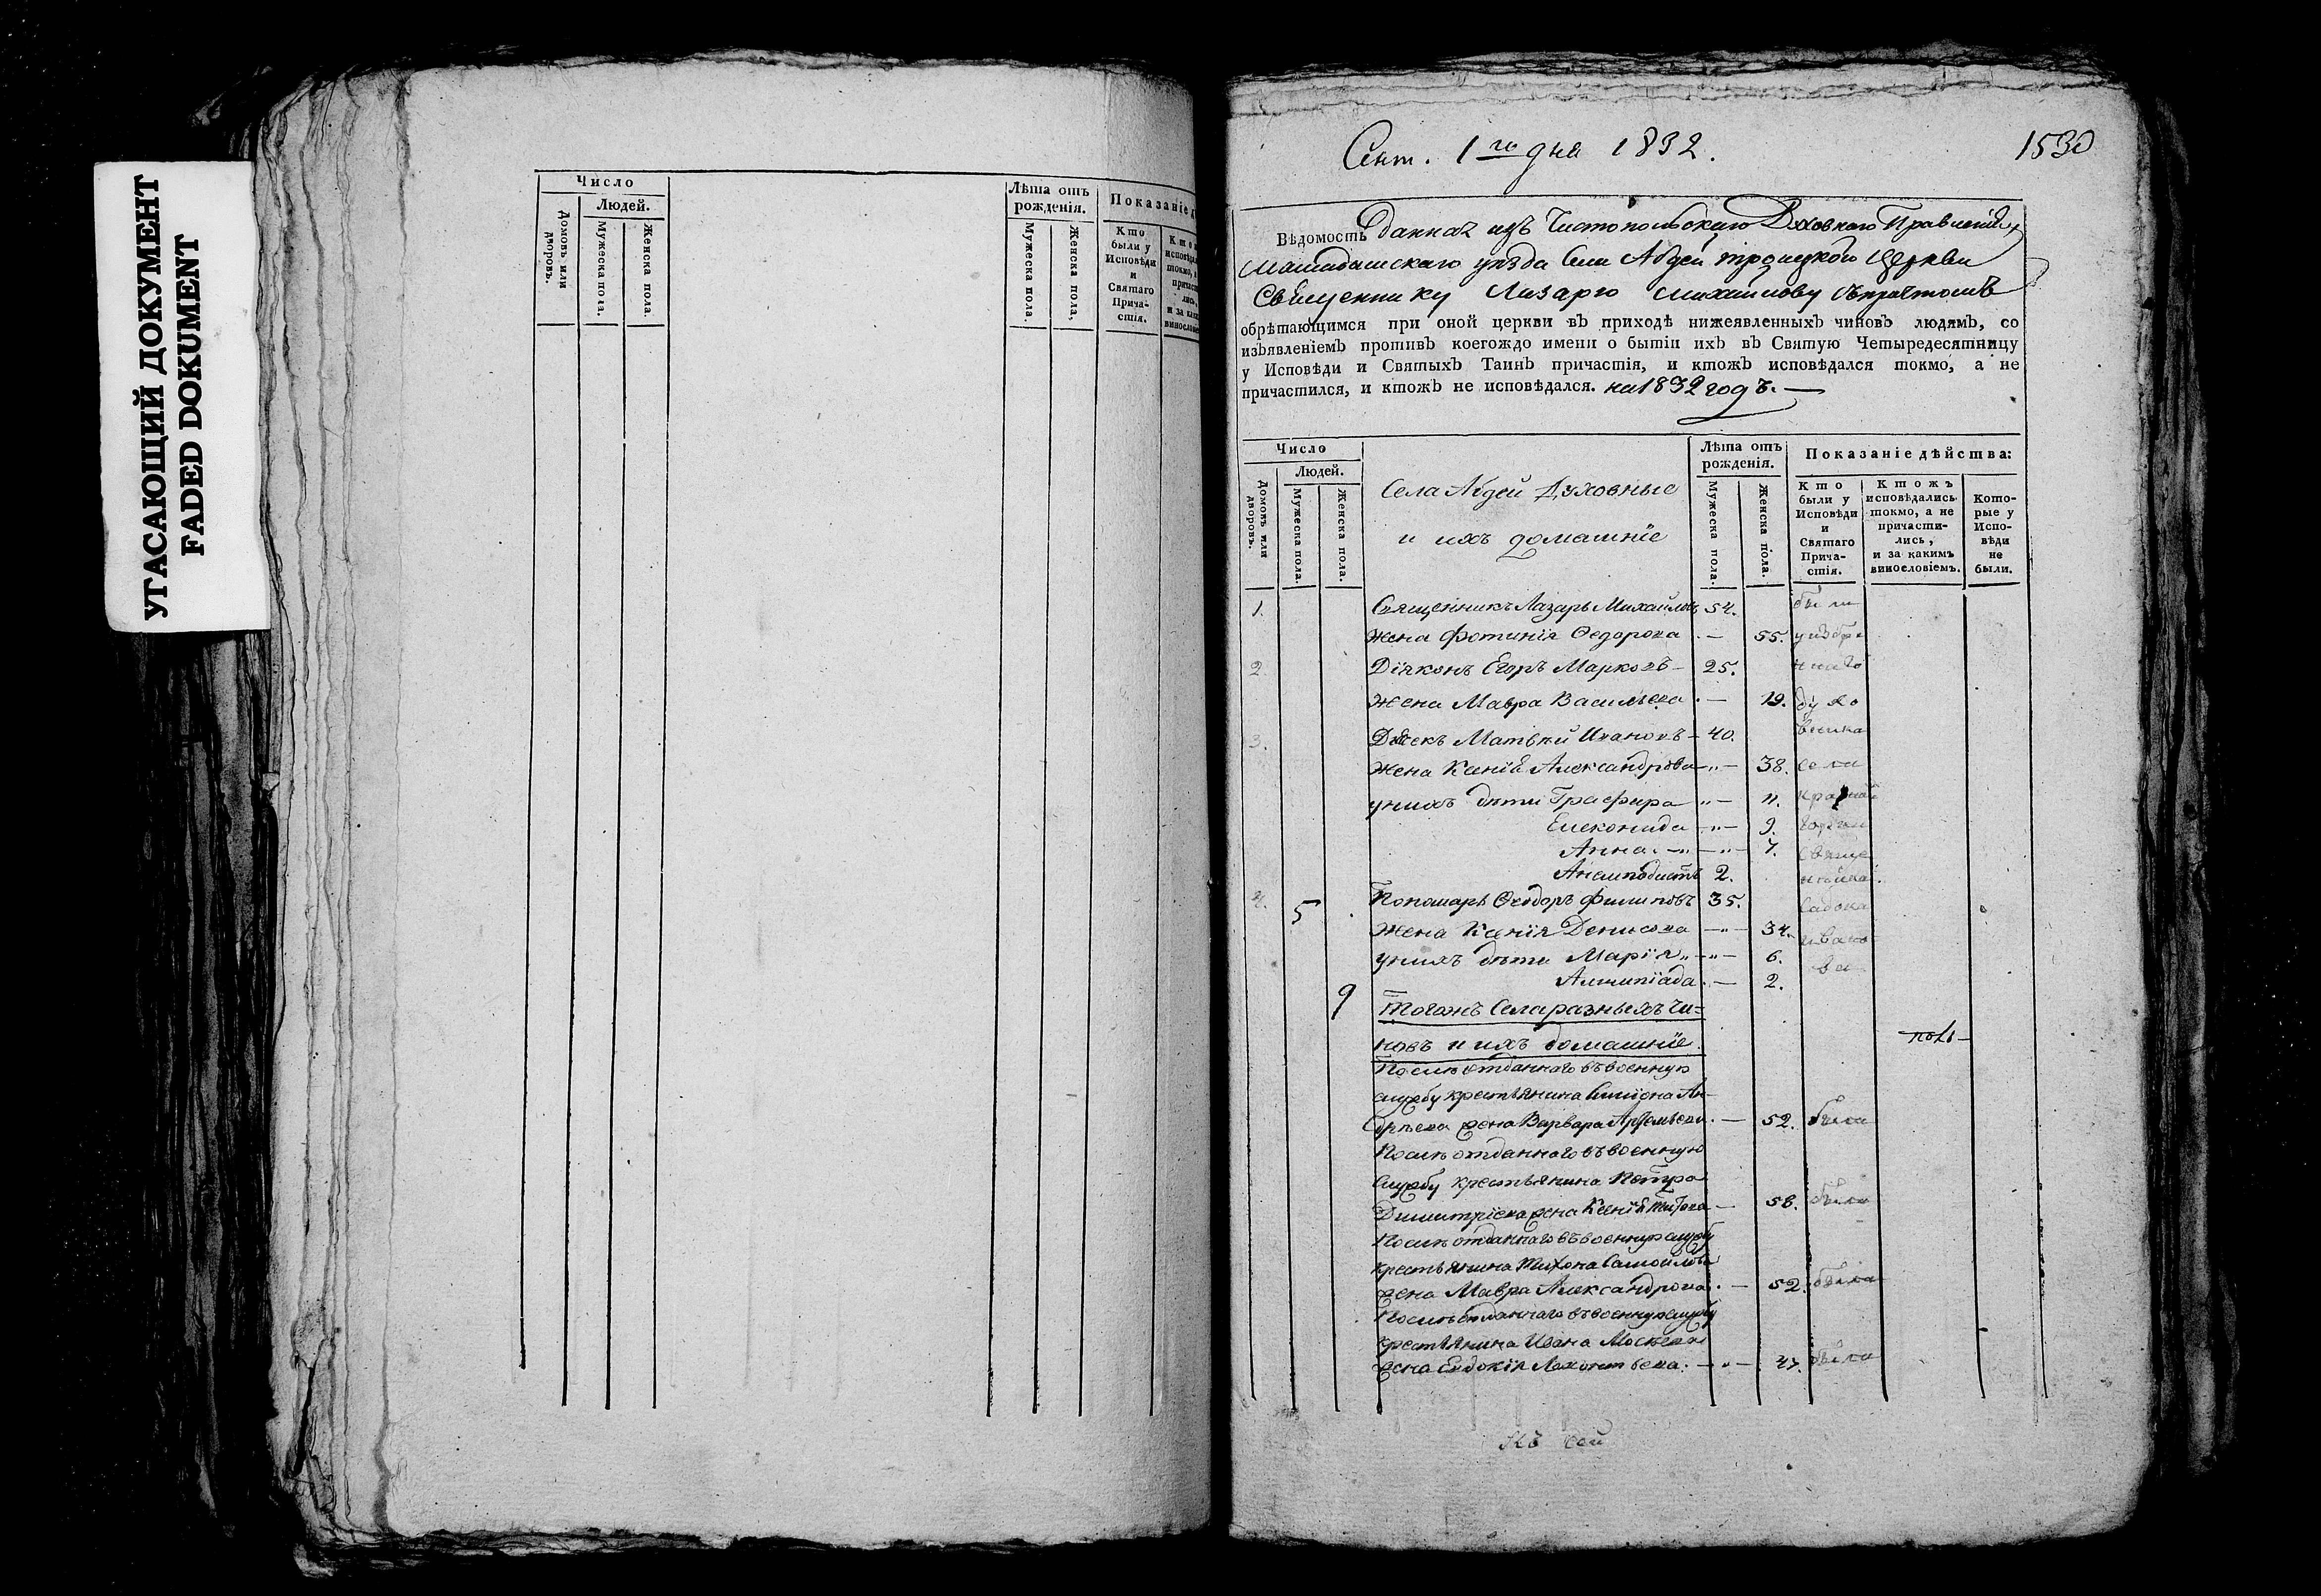 УГАСАЮЩИЙ ДОКУМЕНТ
FADED DOKUMENT
Число
Людей.
Домовъ или дворовъ.
Мужеска пола.
Женска пола.
Лѣта отъ рожденія.
Мужеска пола.
Женска пола,
Показаніе
Кто были у Исповѣди и Святаго Прича-стія.
Сент. 1го дня 1832.
1530
Вѣдомость данная изъ Чистопольскаго Духовнаго Правленія
уѣзда Села Абдей троицкой Церкви
Священнику Лазарю Михайлову съ причтомъ
обрѣтающимся при оной церкви въ приходѣ нижеявленныхъ чиновъ людямъ, со
изъявленіемъ противъ коегождо имени о бытіи ихъ въ Святую Четыредесятницу
у Исповѣди и Святыхъ Таинъ причастія, и ктожъ исповѣдался токмо, а не
причастился, и ктожъ не исповѣдался. на 1832 годъ.
Число
Людей.
Домовъ или дворовъ.
Мужеска пола.
Женска пола.
Села Абдей Духовные
и ихъ домашніе
Лѣта отъ рожденія.
Мужеска пола.
Женска пола.
Показаніе дѣйства:
Кто были у Исповѣди и Святаго Прича-стія.
Ктожъ исповѣдались токмо, а не причасти-лись, и за какимъ винословіемъ.
Кото-рые у Испо-вѣди не были.
1. Священникъ Лазарь Михайловъ 54. были
Жена Фотинія Федорова — 55. у избра
2. Діяконъ Егоръ Марковъ — 25. ннаго
Жена Мавра Васильева — 19. духо
3. Дьячекъ Матвѣй Ивановъ — 40. вника
Жена Ксенія Александрова — 38. села
у нихъ дѣти Графира — 11.
9.
Анна — 7. свяще
Анемподистъ 2. нника
4. 5 Пономарь Ѳеодоръ Филиповъ 35.
Жена Ксенія Денисова — 34. ивано
у нихъ дѣти Марія — 6. ва
Алимпіада — 2.
9 Тогожъ Села разныхъ чи=
новъ и ихъ домашніе.
Послѣ отданнаго въ военную
службу крестьянина Симіона Ан-
дрѣева жена Варвара Артемьева — 52. была
Послѣ отданнаго въ военную
службу крестьянина Петра
Димитріева жена Ксенія Титова — 58. была
Послѣ отданнаго въ военную службу
крестьянина Тихона Самойлова
жена Мавра Александрова — 52. была
Послѣ отданнаго въ военную службу
крестьянина Ивана
жена Евдокія — 47. была